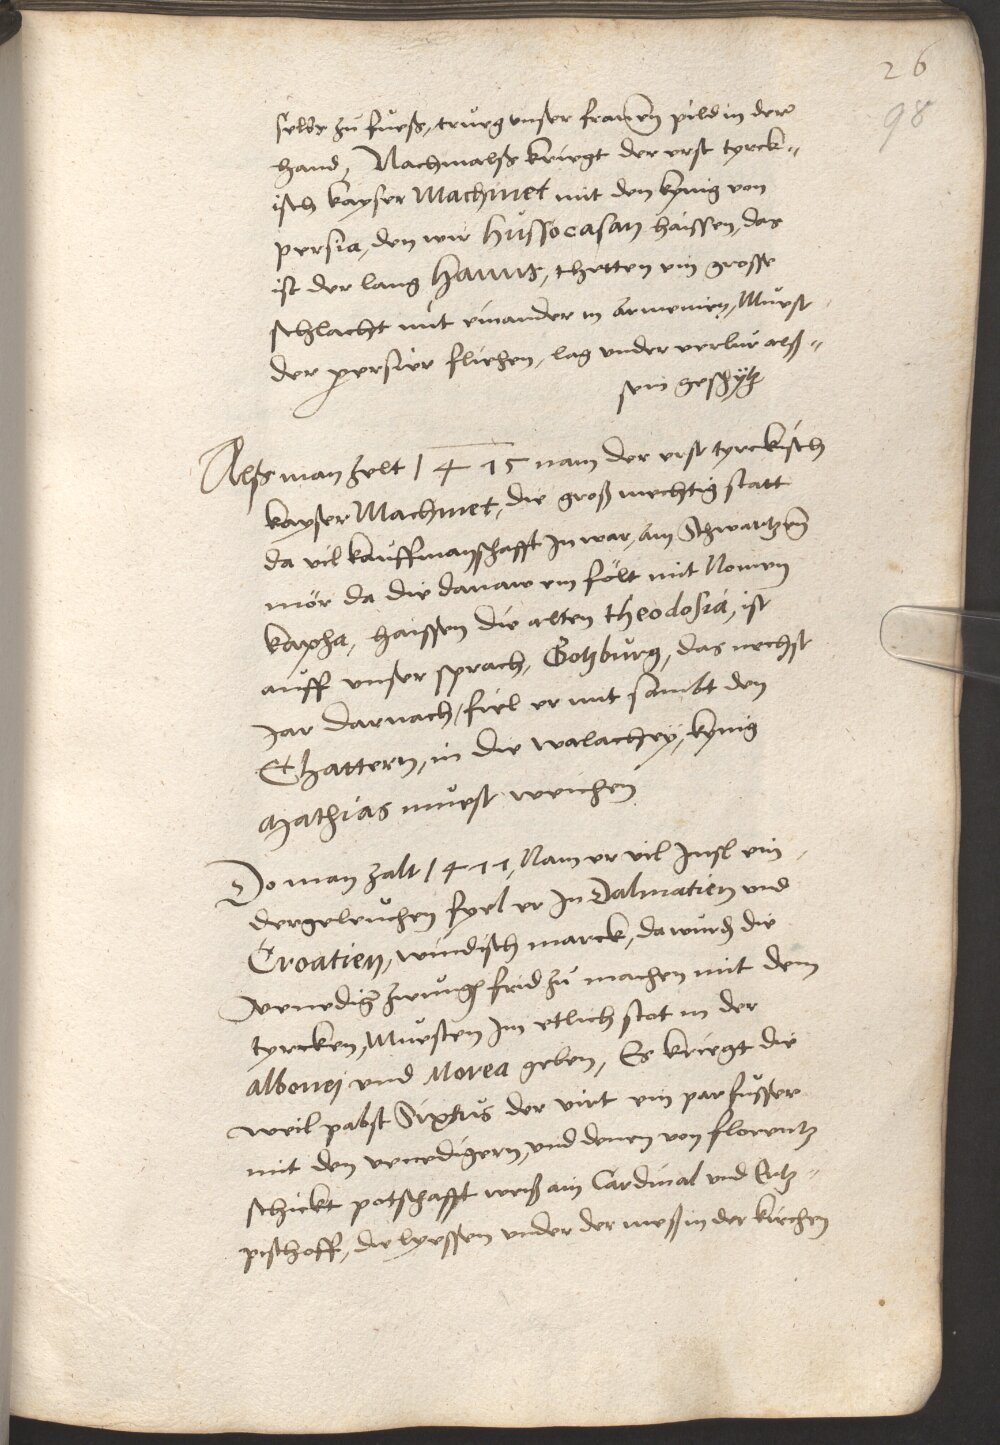 26
98
selbs zů fuesß, trůg unser frawen pild in der
hand, Nachmalsß kriegt der erst tyrck-
isch kayser Machmet mit den kynig von
persia, den wir hussocasan haissen, das
ist der lang Hanns, thetten ein grosse
schlacht mit einander in armenien, Muest
der persier fliehen, lag under verlur alß
sein geschytz
Alß man zelt 1475 nam der erst tyrckisch
kayser Machmet, die groß mechtig statt
da vil kauffmanschafft In war, am Schwartzen
mör da die danaw ein fölt mit Nomen
kapha, haissen die alten theodosia, ist
auff unser sprach, Gotzburg, das nechst
Jar darnach, fiel er mit sambt den
Thattern, in die walachey, kynig
Mathias muest weichen
Do man zalt 1477, Nam er vil Insl ein
dergeleichen fyel er In Dalmatien und
Croatien, windisch marck, da wurd die
venediger zwungen frid zů machen mit dem
tyrcken, Muesten Im etlich stet in der
albonei und Morea geben, Es kriegt die
weil pabst Sixtus der viert ein parfusser
mit den venedigern, und denen von florentz
schickt potschafft weiß ain Cardinal und Ertz-
pischoff, die lyessen under der meß in der kirchen